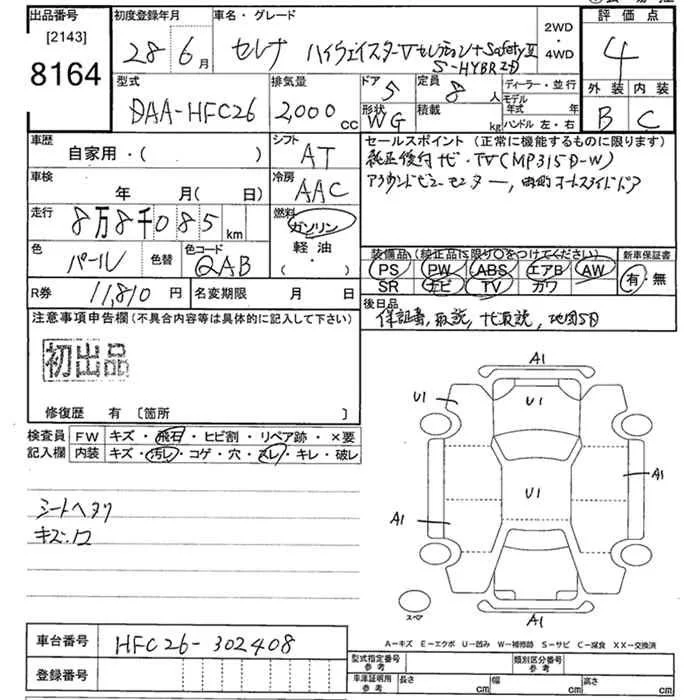 出品番号 初度登録年月 車名・グレード 2WD・4WD 評価点
[2143]
8164
28年6月 セレナ ハイウェイスターVセレクション+SafetyⅡ
S-HYBRID
4
型式 排気量 ドア 定員 ディーラー・並行 外装 内装
DAA-HFC26 2,000cc 5 8人 モデル年式 年
形状 積載 ハンドル 左・右
WG kg B C
車歴 シフト セールスポイント (正常に機能するものに限ります)
自家用・( ) AT 純正後付ナビ・TV(MP315D-W)
車検 冷房 アラウンドビューモニター,両側オートスライドドア
年 月(日) AAC
走行 燃料
8万8千085km ガソリン
軽油
・
色 色替 色コード 装備品 (純正品に限り○をつけてください) 新車保証書
パール QAB PS PW ABS エアB AW 有・無
SR ナビ TV カワ
R券 11,810円 名変期限 月 日 後日品
保証書,取説,ナビ取説,地図SD
注意事項申告欄(不具合内容等は具体的に記入して下さい)
初出品
修復歴 有 [箇所 ]
検査員 FW キズ・飛石・ヒビ割・リペア跡・×要
記入欄 内装 キズ・汚レ・コゲ・穴・スレ・キレ・破レ
シートヘタリ
キズ.
A1
U1 U1
A1
U1
A1
スペア A1
A-キズ E-エクボ U-凹み W-補修跡 S-サビ C-腐食 XX-交換済
車台番号 HFC26-302408
登録番号
型式指定番号 参考 類別区分番号 参考
車庫証明用 参考 長さ cm 幅 cm 高さ cm